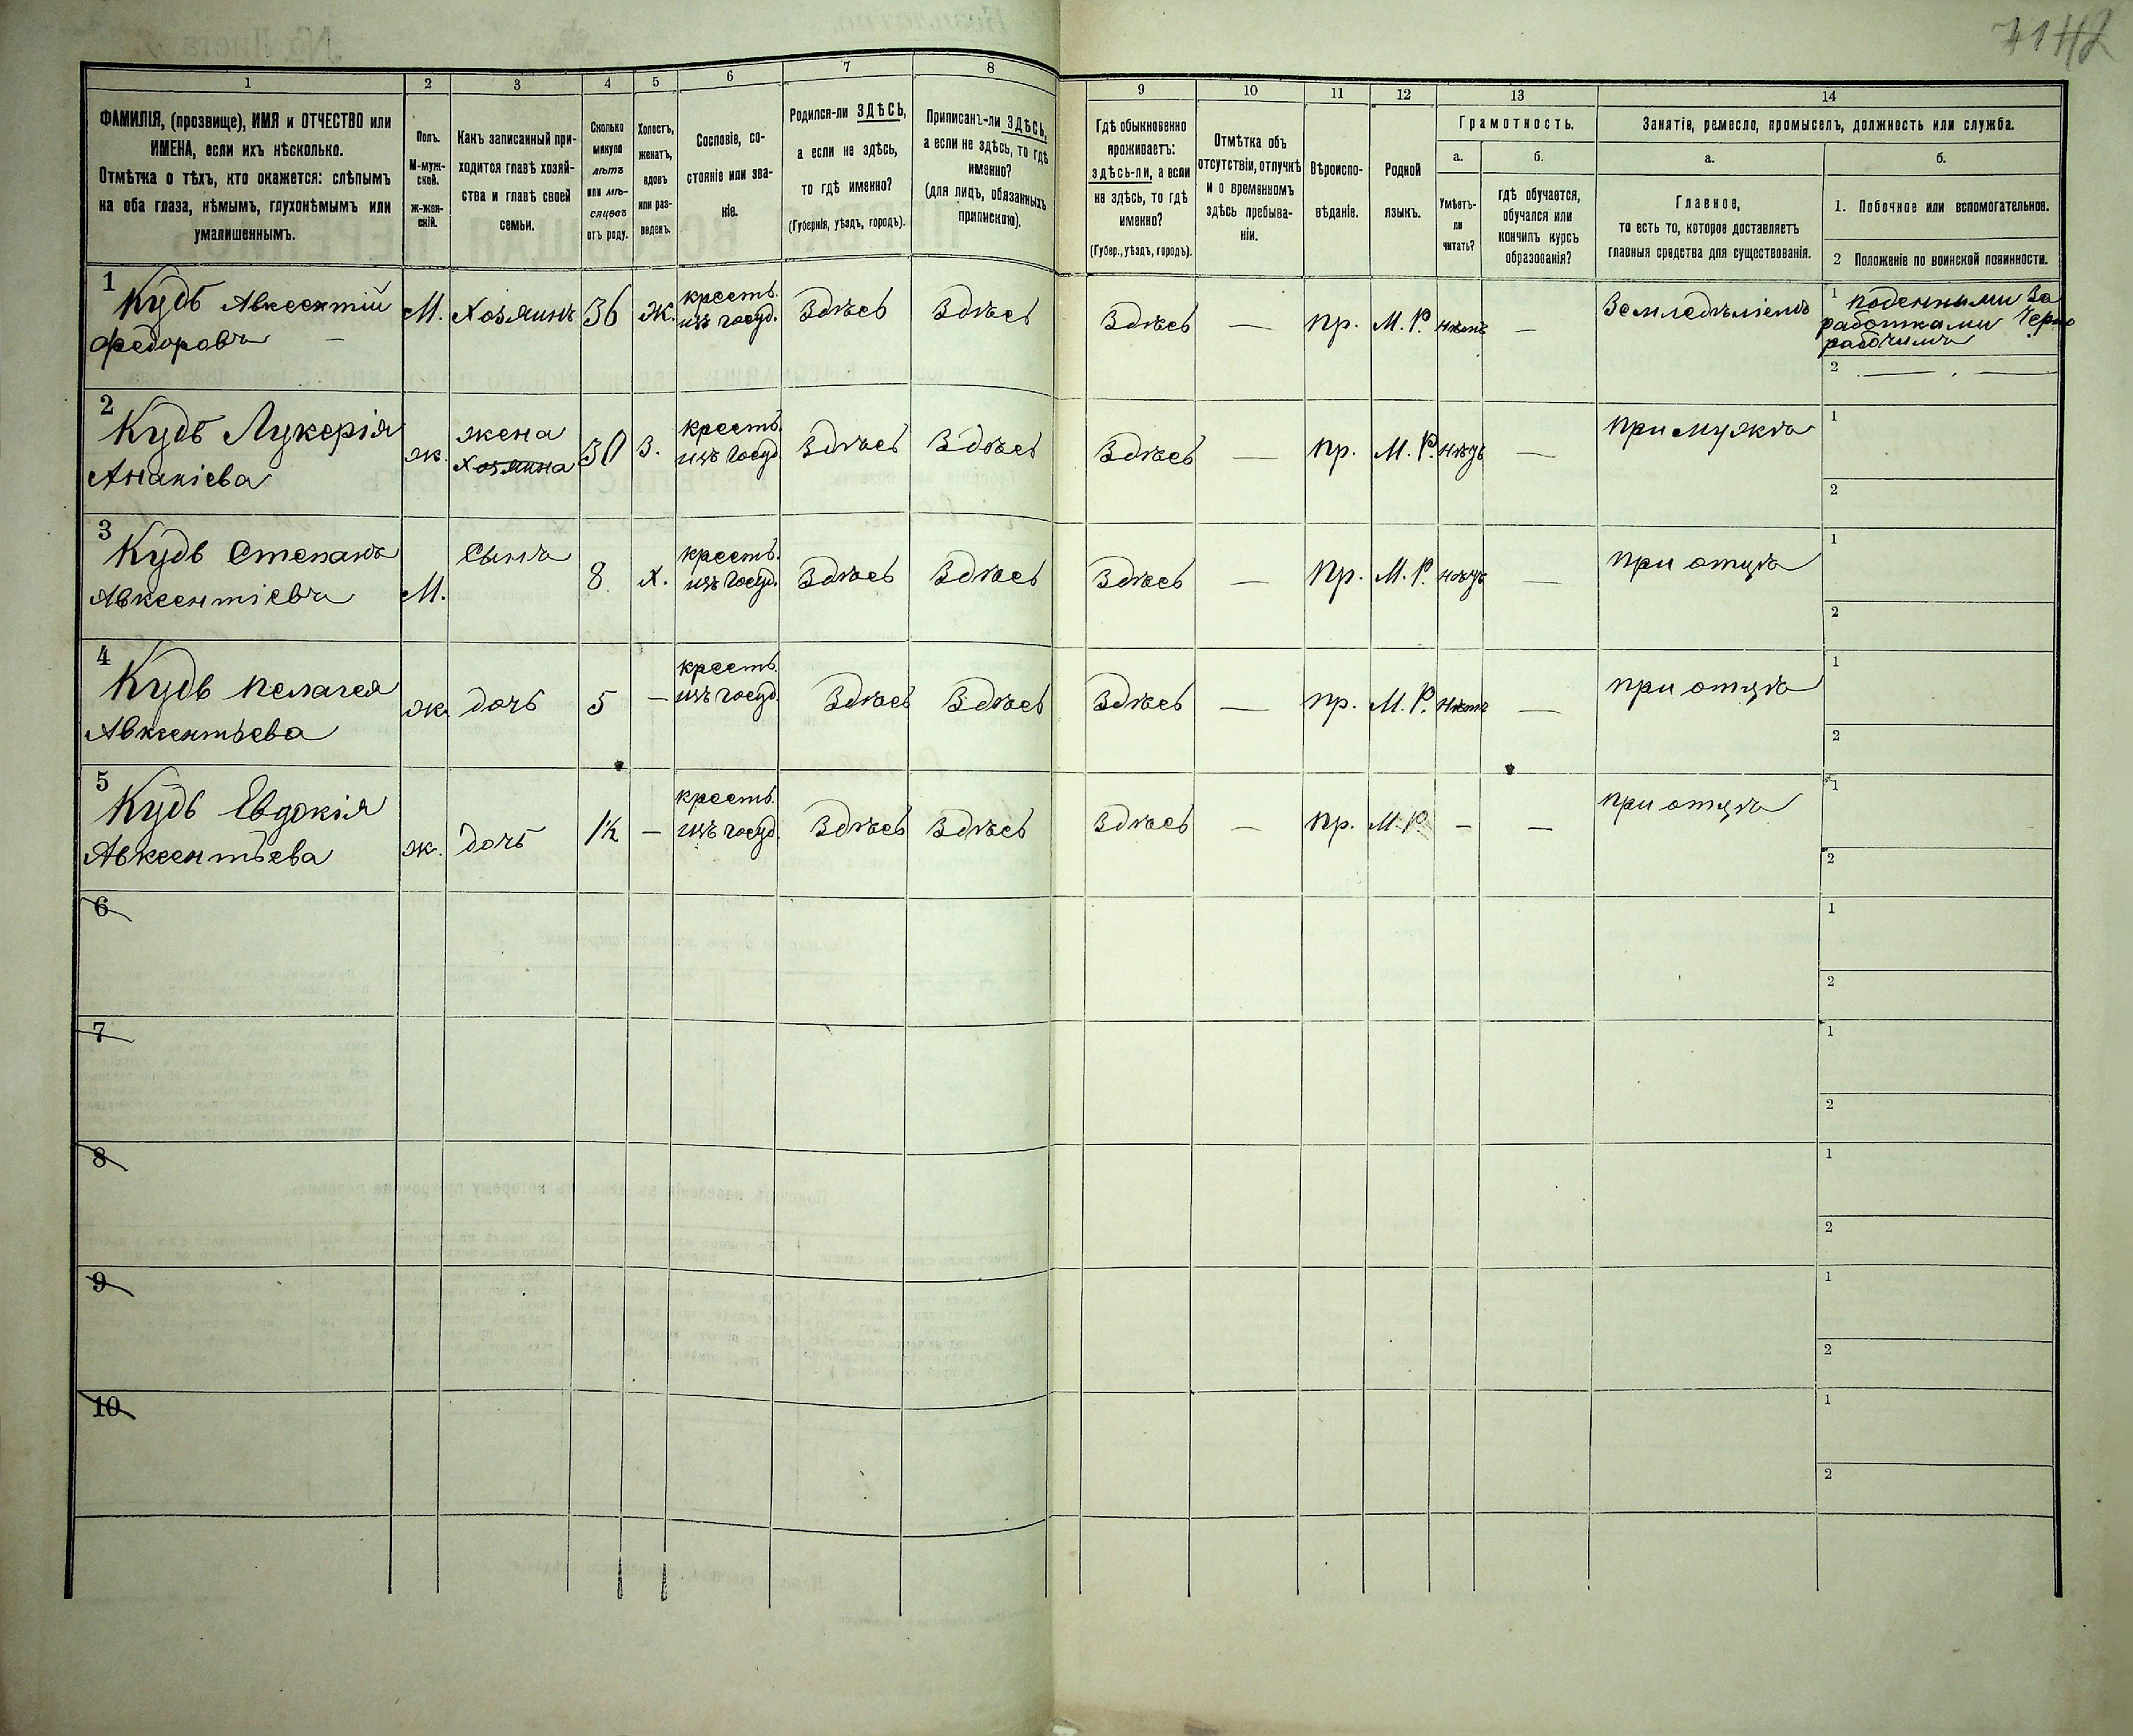 71 42
1 2 3 4 5 6 7 8 9 10 11 12 13 14
ФАМИЛІЯ, (прозвище), ИМЯ и ОТЧЕСТВО или
ИМЕНА, если ихъ нѣсколько.
Отмѣтка о тѣхъ, кто окажется: слѣпымъ
на оба глаза, нѣмымъ, глухонѣмымъ или
умалишеннымъ.
Полъ.
М-муж-
ской.
Ж-жен-
скій.
Какъ записанный при-
ходится главѣ хозяй-
ства и главѣ своей
семьи.
Сколько
минуло
лѣтъ
или мѣ-
сяцевъ
отъ роду.
Холостъ,
женатъ,
вдовъ
или раз-
веденъ.
Сословіе, со-
стояніе или зва-
ніе.
Родился-ли ЗДѢСЬ,
а если не здѣсь,
то гдѣ именно?
(Губернія, уѣздъ, городъ).
Приписанъ-ли ЗДѢСЬ,
а если не здѣсь, то гдѣ
именно?
(для лицъ, обязанныхъ
припискою).
Гдѣ обыкновенно
проживаетъ:
здѣсь-ли, а если
не здѣсь, то гдѣ
именно?
(Губер., уѣздъ, городъ).
Отмѣтка объ
отсутствіи, отлучкѣ
и о временномъ
здѣсь пребыва-
ніи.
Вѣроиспо-
вѣданіе.
Родной
языкъ.
Грамотность.
а.
Умѣетъ-
ли
читать?
б.
гдѣ обучается,
обучался или
кончилъ курсъ
образованія?
Занятіе, ремесло, промыселъ, должность или служба.
а.
Главное,
то есть то, которое доставляетъ
главныя средства для существованія.
б.
1. Побочное или вспомогательное.
2 Положеніе по воинской повинности.
1
Кудь Авксентій
Федоровъ —
М.
Хозяинъ
36
Ж.
кресть.
изъ госуд.
Здѣсь
Здѣсь
Здѣсь
—
пр.
М. Р.
нѣтъ
—
Земледѣліемъ
1 поденными За
работками Черно
рабочимъ
2 —
2
Кудь Лукерія
Ананіева
ж.
жена
Хозяина
30
З.
кресть.
изъ госуд.
Здѣсь
Здѣсь
Здѣсь
—
пр.
М. Р.
нѣтъ
—
при мужѣ
1
2
3
Кудь Степанъ
Авксентіевъ
М.
Сынъ
8
Х.
кресть.
изъ госуд.
Здѣсь
Здѣсь
Здѣсь
—
пр.
М. Р.
нѣтъ
—
при отцѣ
1
2
4
Кудь Пелагея
Авксентьева
ж.
дочь
5
—
кресть.
изъ госуд.
Здѣсь
Здѣсь
Здѣсь
—
пр.
М. Р.
нѣтъ
—
при отцѣ
1
2
5
Кудь Евдокія
Авксентьева
ж.
дочь
1½
—
кресть.
изъ госуд.
Здѣсь
Здѣсь
Здѣсь
—
пр.
М. Р.
—
—
при отцѣ
1
2
6
1
2
7
1
2
8
1
2
9
1
2
10
1
2